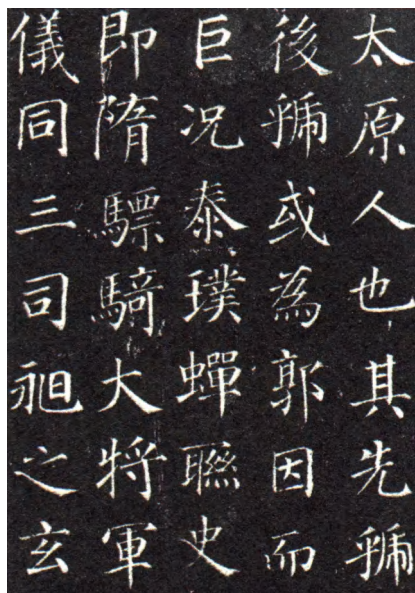 太原人也其先虢
後虢或為郭因而
巨况泰璞蟬聮史
即隋驃騎大將軍
儀同三司昶之玄